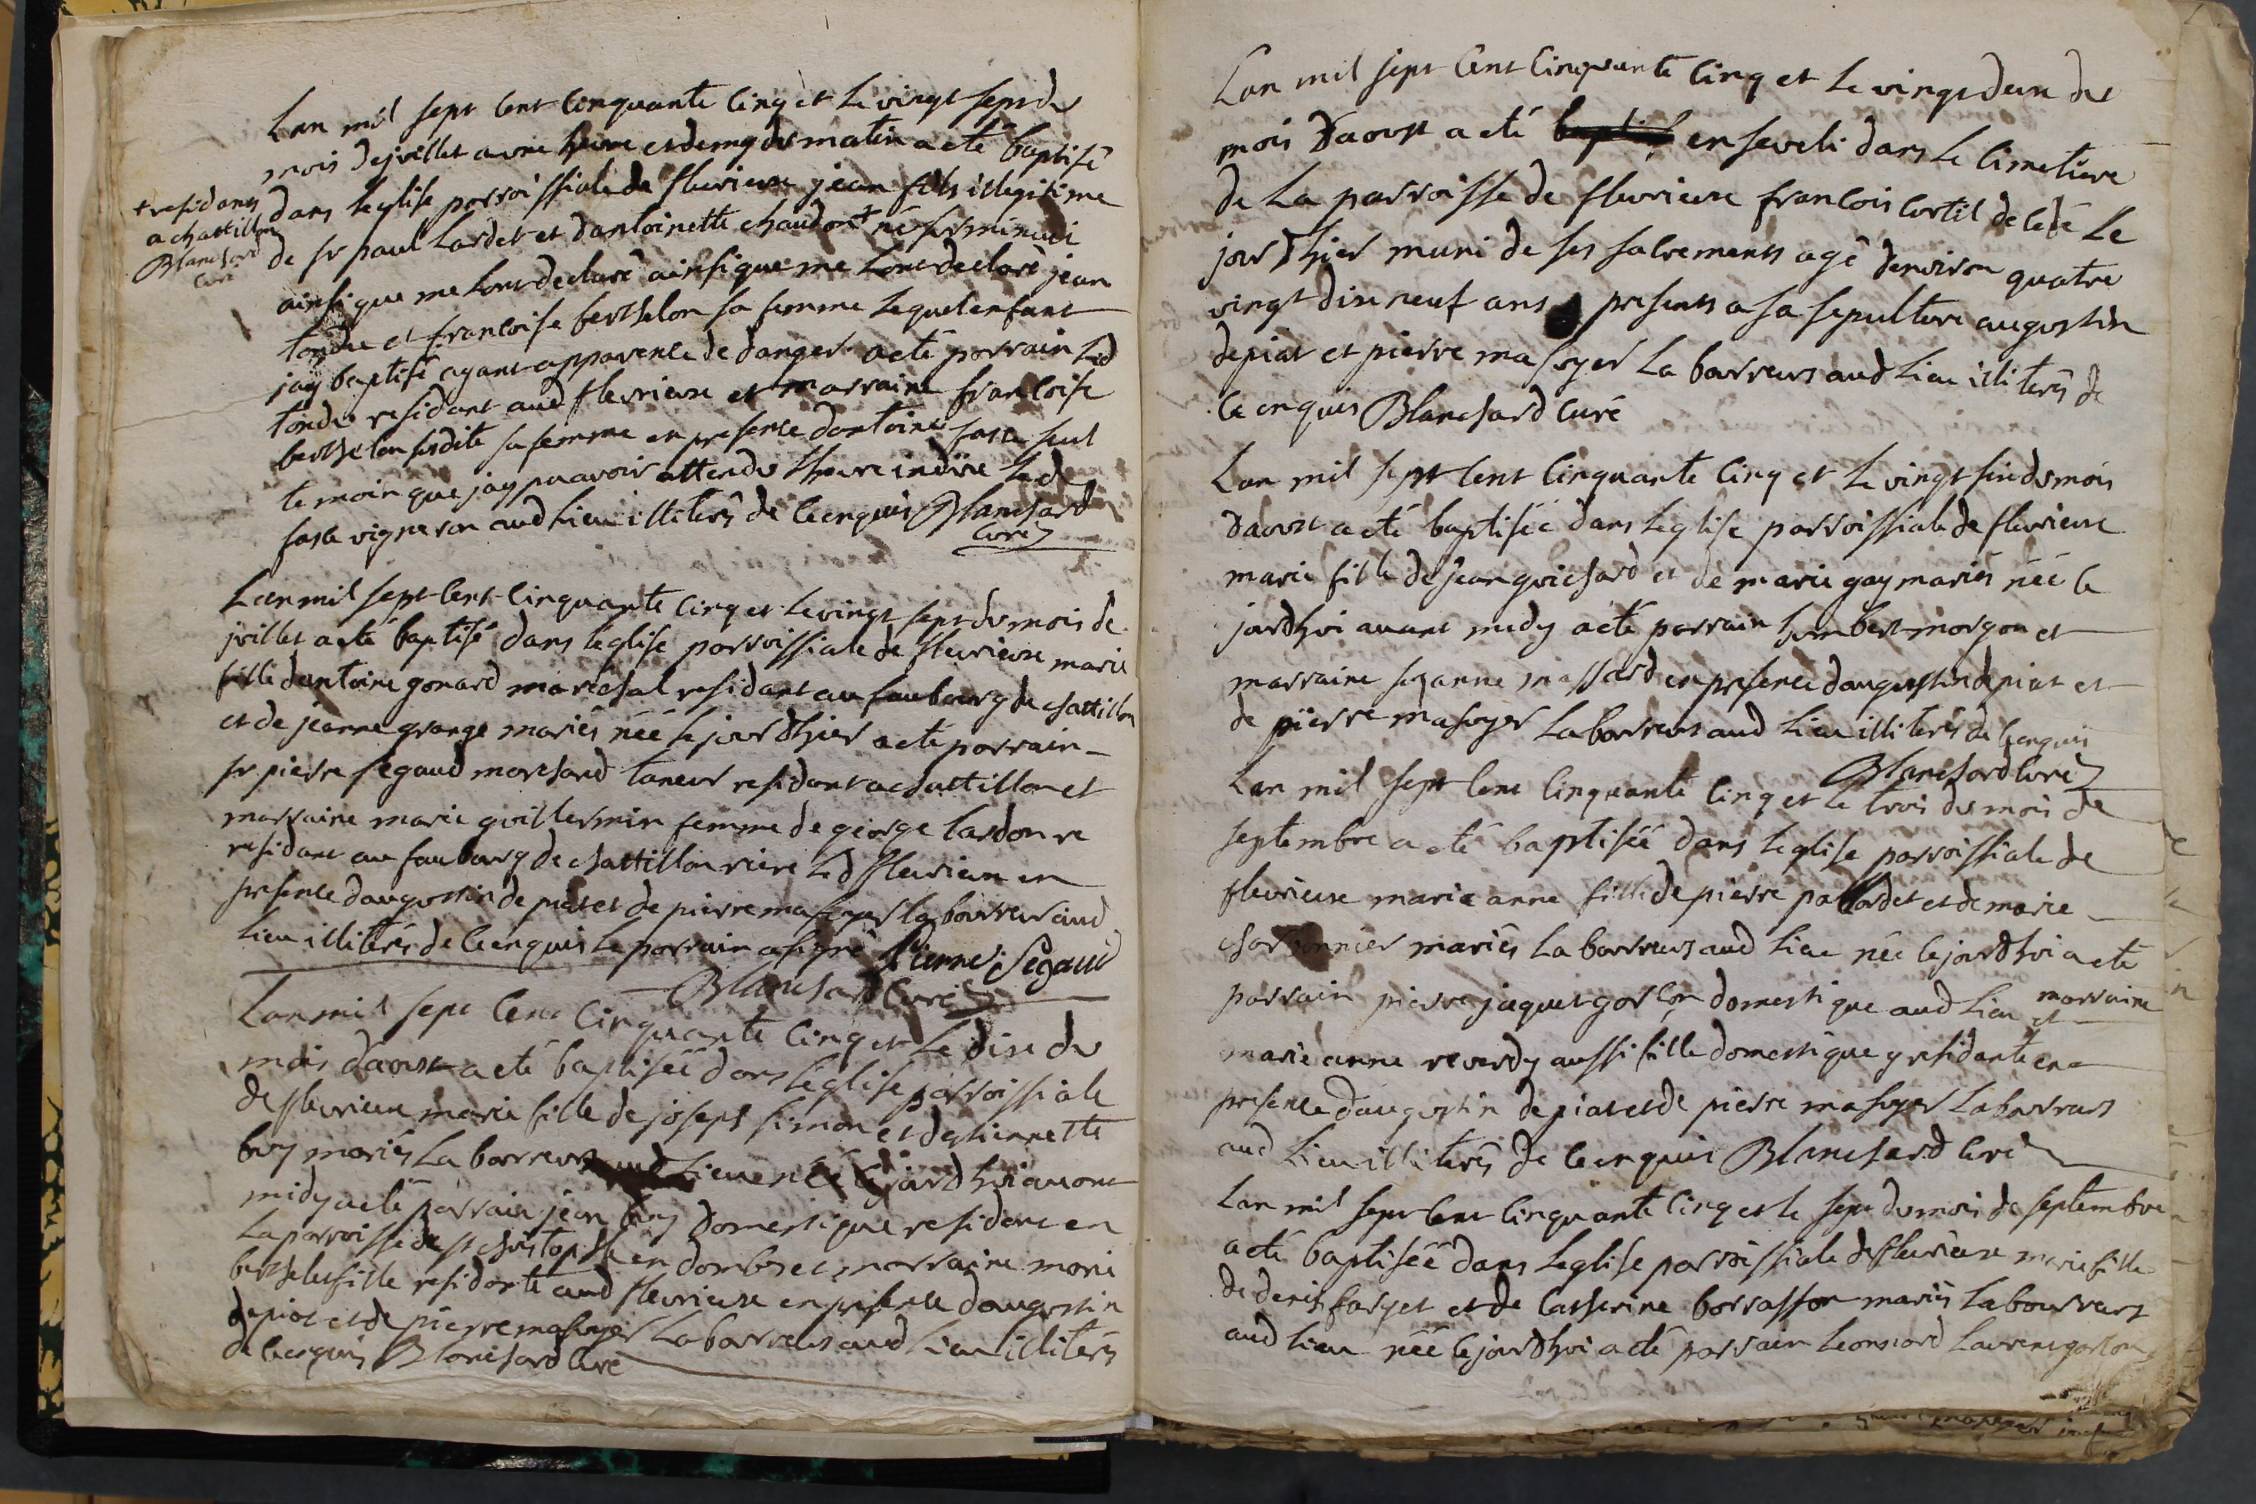 Lan mil sept cent cinquante cinq et le vingt sept du
mois de juillet a une heure et demy du matin a eté baptisé
dans leglise parroissiale de fleurieux jean fils illegitime
de sr paul Lardet et dantoinette chaudon + né sur minuit
+ residants
a chattillon
Blanchard
curé
ainsi que me lont declaré ainsi que me lont declaré jean
tondu et francoise berthelon sa femme lequel enfant
jay baptisé ayant apparence de danger a eté parrain led
tondu residant aud fleurieux et marraine francoise
berthelon susdite sa femme en presence dantoine seul
temoin que jay pu avoir attendu lheure indüe led
vigneron aud lieu illiterés de ce enquis Blanchard
curé
Lan mil sept cent cinquante cinq et le vingt sept du mois de
juillet a eté baptisé dans leglise parroissiale de fleurieux marie
fille dantoine gonard marechal residant au faubourg de chattillon
et de jeanne grange mariés née le jour dhier a eté parrain
sr pierre segaud marchand taneur residant a chattillon et
marraine marie guillermin femme de george lardon re
residant au faubourg de chattillon riere led fleurieux en
presence daugustin depiat et de pierre masoyer laboureurs aud
lieu illiterés de ce enquis le parrain a signé Pierre Segaud
Blanchard curé
Lan mil sept cent cinquante cinq et le dix du
mois daoust a eté baptiséé dans leglise parroissiale
de fleurieux marie fille de joseph simon et detiennette
buy mariés laboureurs aud lieu née le jourdhui avant
midy a eté parrain jean buy domestique residant en
la parroisse de st christophle en dombes et marraine marie
berthelet fille residante aud fleurieux en presence daugustin
depiat et de pierre masoyer laboureurs aud lieu illiterés
de ce enquis Blanchard curé
Lan mil sept cent cinquante cinq et le vingt deux du
mois daoust a eté enseveli dans le cimetiere
de la parroisse de fleurieux francois curtil decedé le
jour dhier muni de ses sacrements agé denviron quatre
vingt dix neuf ans presents a sa sepulture augustin
depiat et pierre masoyer laboureurs aud lieu illiterés de
ce enquis Blanchard curé
Lan mil sept cent cinquante cinq et le vingt six du mois
daoust a eté baptiséé dans leglise parroissiale de fleurieux
marie fille de jean guichard et de marie gay mariés néé le
jourdhui avant midy a eté parrain humbert morgon et
marraine suzanne massard en presence daugustin depiat et
de pierre masoyer laboureurs aud lieu illiterés de ce enquis
Blanchard curé
Lan mil sept cent cinquante cinq et le trois du mois de
septembre a eté baptiséé dans leglise parroissiale de
fleurieux marie anne fille de pierre et de marie
charbonnier mariés laboureurs aud lieu néé le jourdhui a eté
parrain pierre jaquet garçon domestique aud lieu et marraine
marie anne reverdy aussi fille domestique y residante en
presence daugustin depiat et de pierre masoyer laboureurs
aud lieu illiterés de ce enquis Blanchard curé
Lan mil sept cent cinquante cinq et le sept du mois de septembre
a eté baptiséé dans leglise parroissiale de fleurieux marie fille
de denis farget et de catherine borrasson mariés laboureurs
aud lieu néé le jourdhui a eté parrain leonnard laurent garcon